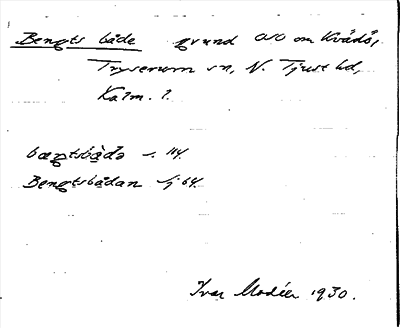 Bengts både grund OSO om Kvädö,
Tryserum sn, N. Tjust hd,
Kalm. l.
bæŋtsbådə ~ 114.
Bengtsbådan Sj 64.
Ivar Modéer 1930.